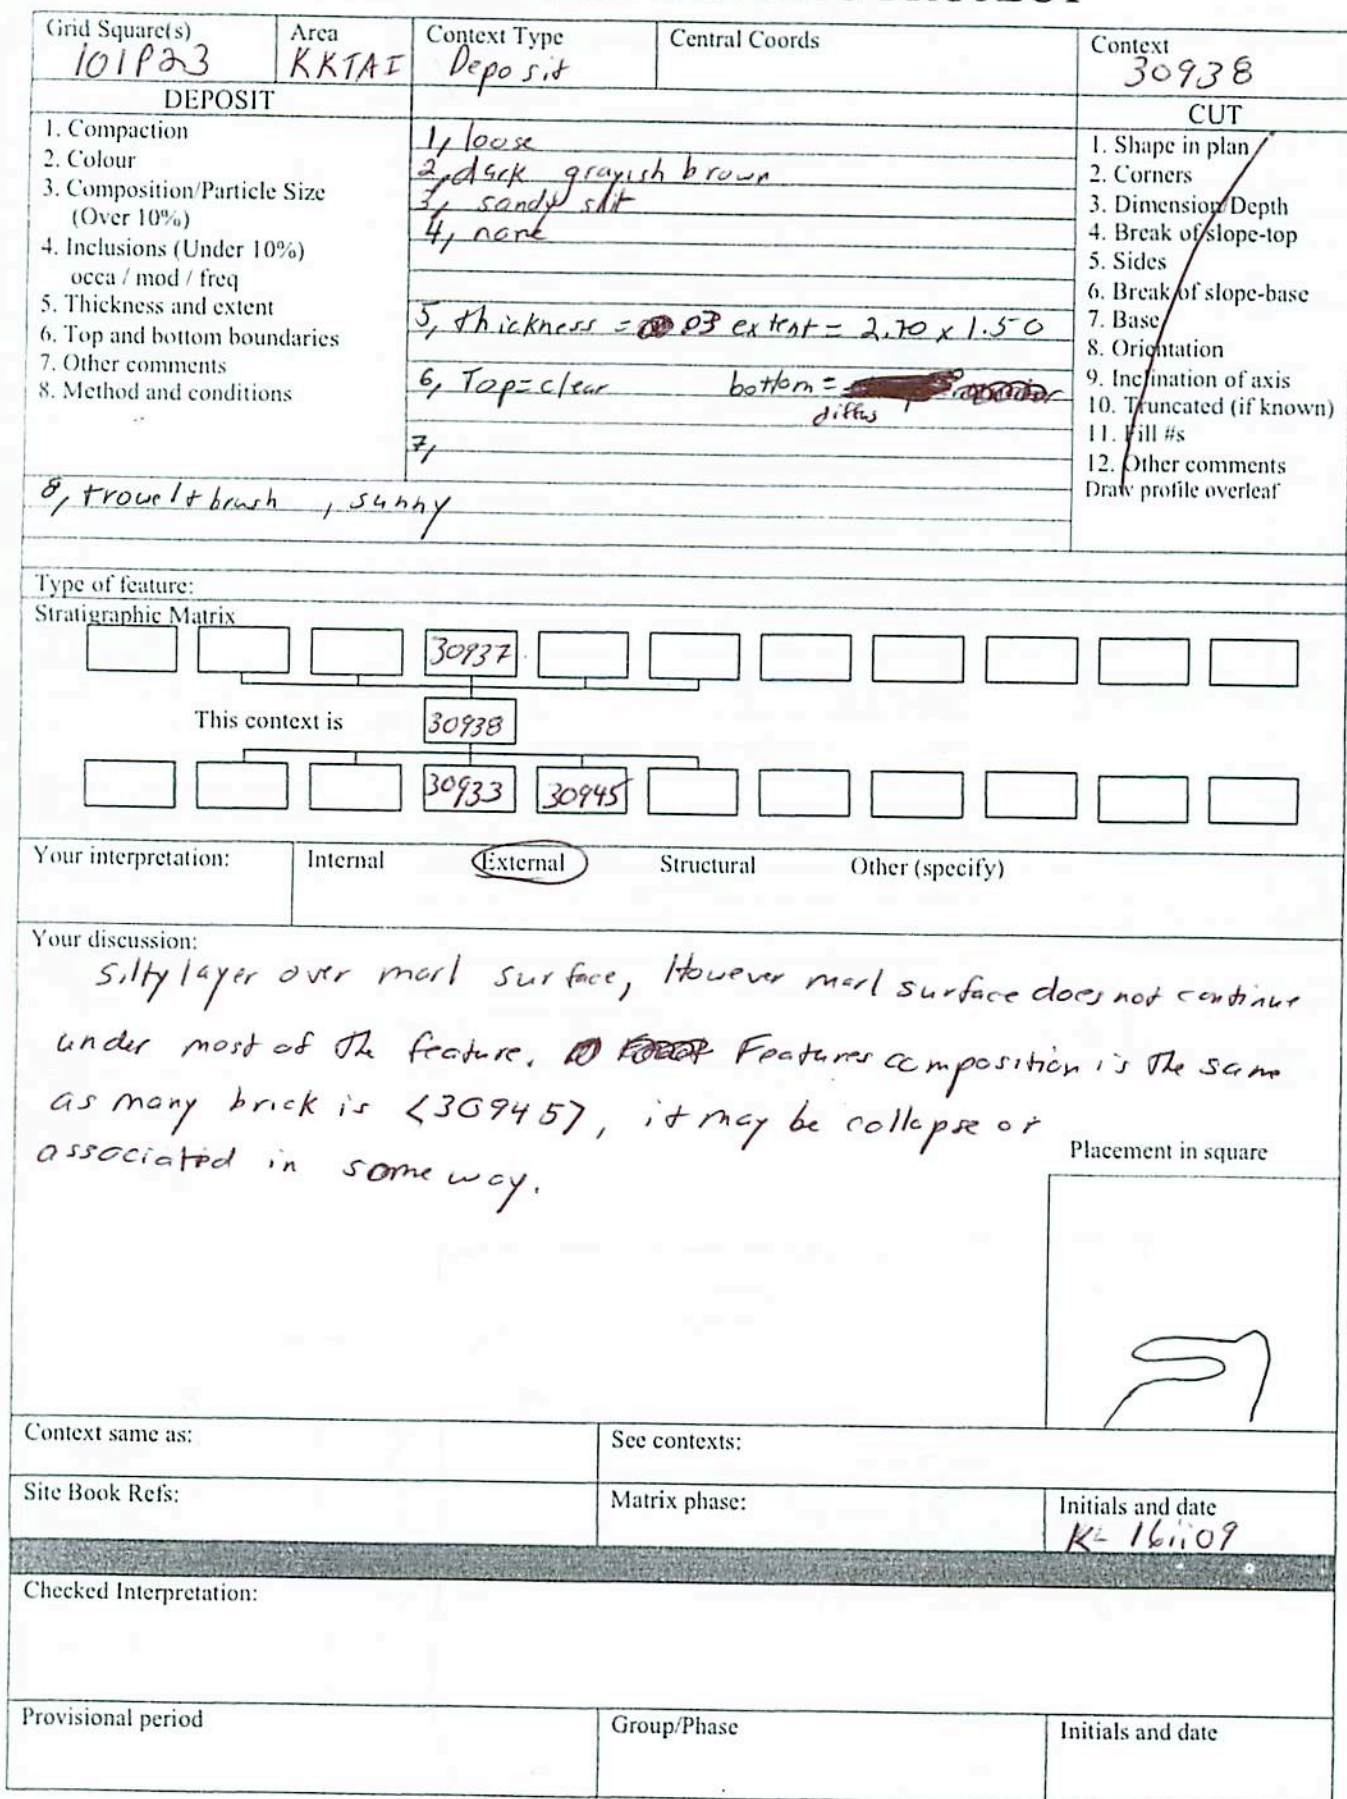 Grid Square(s) Area Context Type Central Coords Context
101P23 KKTAI Deposit 30938
DEPOSIT CUT
1. Compaction
2. Colour
3. Composition/Particle Size
(Over 10%)
4. Inclusions (Under 10%)
occa / mod / freq
5. Thickness and extent
6. Top and bottom boundaries
7. Other comments
8. Method and conditions
1, loose
2, dark grayish brown
3, sandy silt
4, none
5, thickness = .03 extent = 2.70 x 1.50
6, Top=clear bottom =
diffus
7,
8, trowel + brush , sunny
1. Shape in plan
2. Corners
3. Dimension/Depth
4. Break of slope-top
5. Sides
6. Break of slope-base
7. Base
8. Orientation
9. Inclination of axis
10. Truncated (if known)
11. Fill #s
12. Other comments
Draw profile overleaf
Type of feature:
Stratigraphic Matrix
30937
This context is 30938
30933 30945
Your interpretation: Internal External Structural Other (specify)
Your discussion:
Silty layer over marl surface, However marl surface does not continue
under most of the feature. Features composition is the same
as many brick is <30945>, it may be collapse or
associated in some way.
Placement in square
Context same as: See contexts:
Site Book Refs: Matrix phase: Initials and date
16ii09
Checked Interpretation:
Provisional period Group/Phase Initials and date